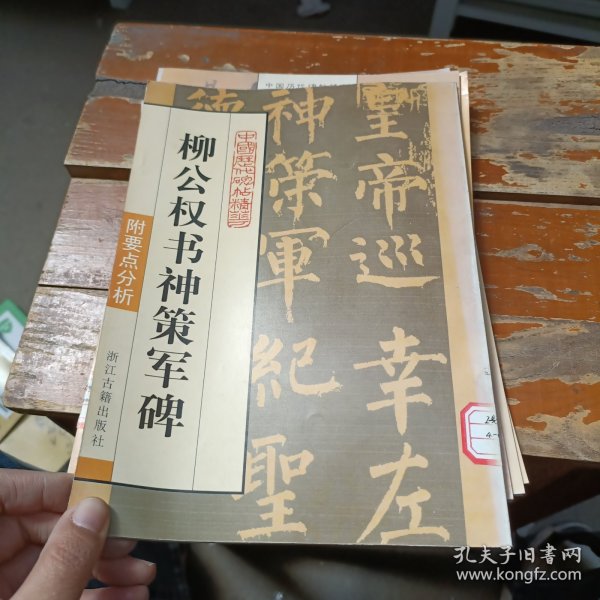 柳公权书神策军碑
附要点分析
浙江古籍出版社
中國歷代碑帖精華
皇帝巡幸左
神策軍紀聖
德
孔夫子旧书网
www.kongfz.com